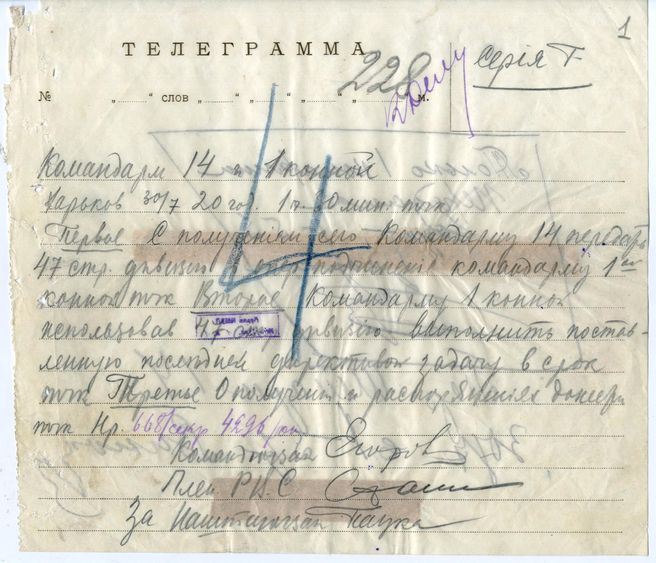 1
ТЕЛЕГРАММА
228
Серія Г
№ „ “ слов „ “ „ “ „ “ м.
Командарм 14 и 1 конной
Харьков 30/7 20 год. 1 ч. 30 мин. тчк
Первое С получением сего Командарму 14 передать
47 стр. дивизию в командарму 1ой
конной тчк Второе Командарму 1 конной
использовав 47 дивизию выполнить постав-
ленную последней директивой задачу в срок
тчк Третье О получении и распоряжениях донести
тчк Нр. 668/секр 4296/оп
Командюгзап Егоров
Член РВС Сталин
За Наштаюгзап Паука